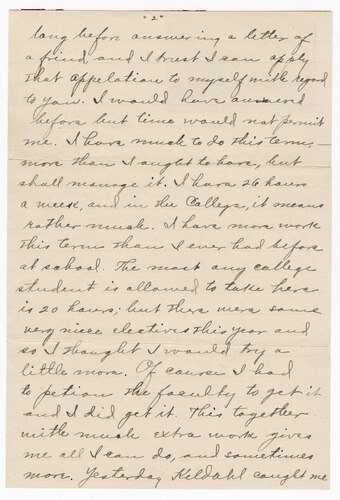 "2"
long before answering a letter of
a friend, and I trust I can apply
that appelation to myself with regard
to you. I would have answerd
before but time would not permit
me. I have much to do this term,—
more than I ought to have, but
shall manage it. I have 26 hours
a week, and in the College, it means
rather much. I have more work
this term than I ever had before
at school. The most any college
student is allowed to take here
is 20 hours; but there were some
very nice electives this year and
so I thought I would try a
little more. Of course I had
to petion the faculty to get it
and I did get it. This together
with much extra work gives
me all I can do, and sometimes
more. Yesterday Keldahl caught me